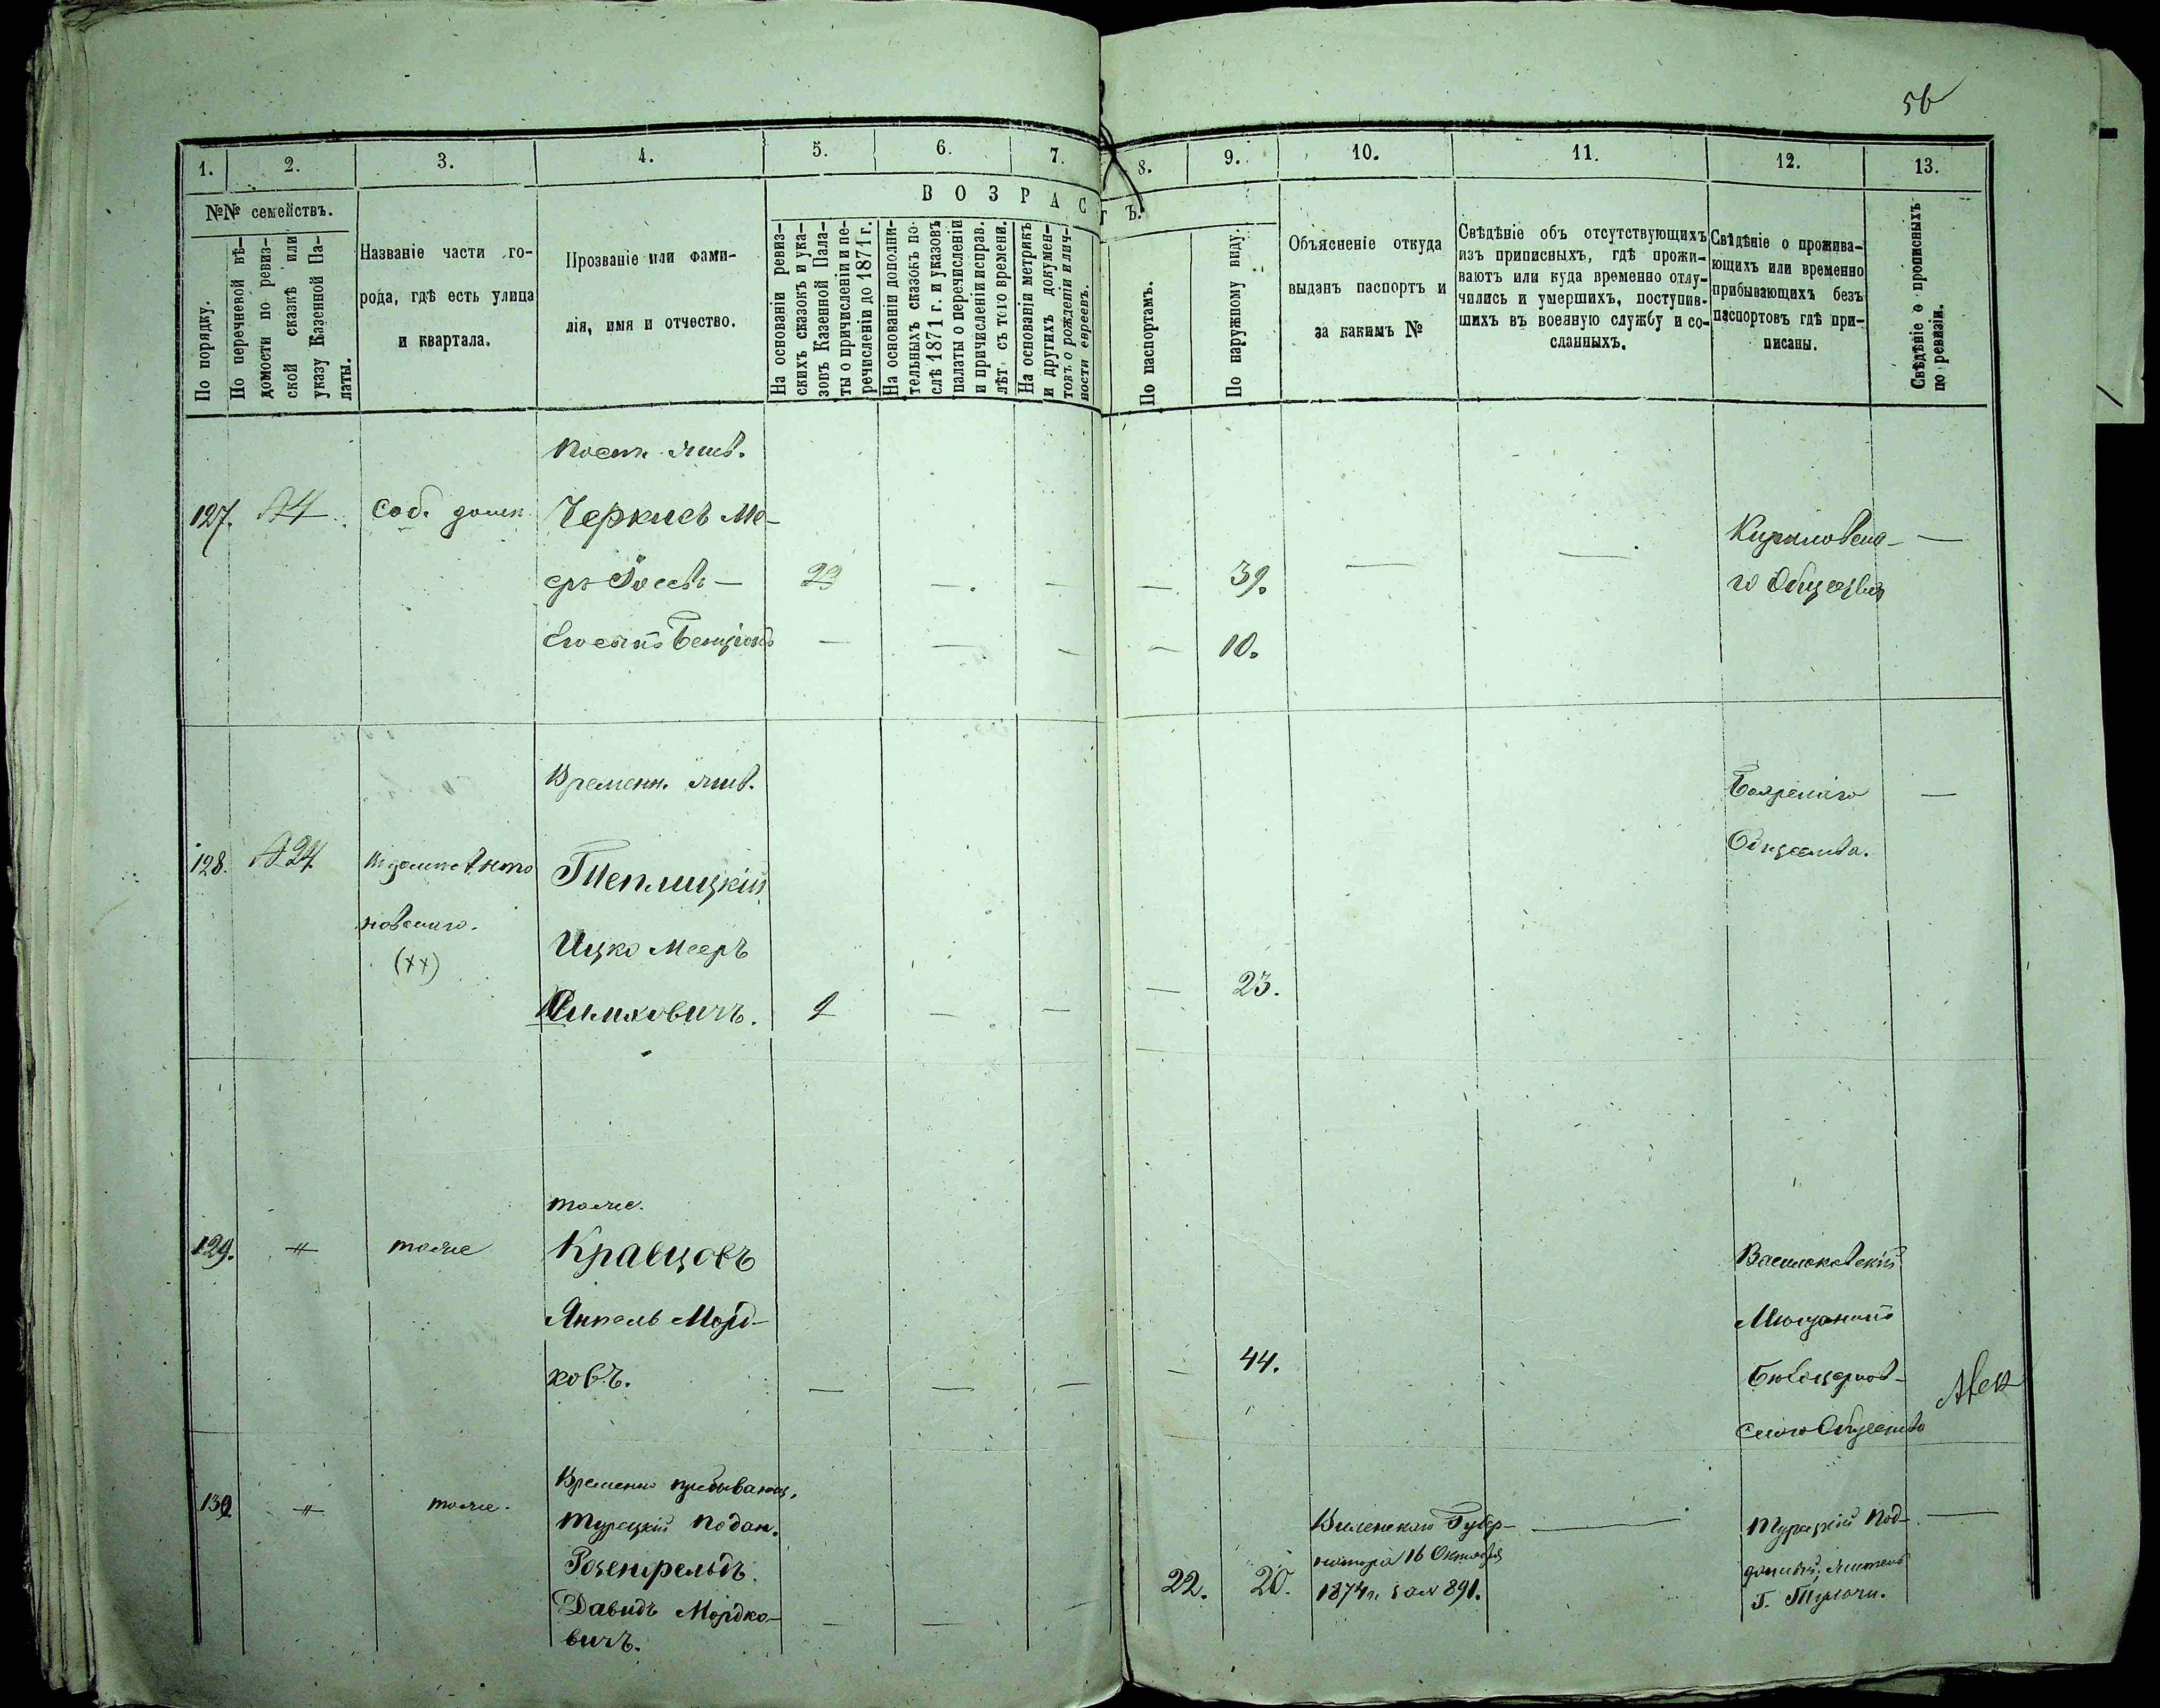 56
1. 2. 3. 4. 5. 6. 7. 8. 9. 10. 11. 12. 13.
№№ семействъ.
В О З Р А С Т Ъ.
По порядку.
По перечневой вѣ-
домости по ревиз-
ской сказкѣ или
указу Казенной Па-
латы.
Названіе части го-
рода, гдѣ есть улица
и квартала.
Прозваніе или фами-
лія, имя и отчество.
На основаніи ревиз-
скихъ сказокъ и ука-
зовъ Казенной Пала-
ты о причисленіи и пе-
речисленіи до 1871 г.
На основаніи дополни-
тельныхъ сказокъ по-
слѣ 1871 г. и указовъ
палаты о перечисленіи
и причисленіи исправ.
лѣт. съ того времени.
На основаніи метрикъ
и другихъ докумен-
товъ о рожденіи и лич-
ности евреевъ.
По паспортамъ.
По наружному виду.
Объясненіе откуда
выданъ паспортъ и
за какимъ №
Свѣдѣніе объ отсутствующихъ
изъ приписныхъ, гдѣ прожи-
ваютъ или куда временно отлу-
чились и умершихъ, поступив-
шихъ въ военную службу и со-
сланныхъ.
Свѣдѣніе о прожива-
ющихъ или временно
прибывающихъ безъ
паспортовъ гдѣ при-
писаны.
Свѣдѣніе о прописныхъ
по ревизіи.
127. Соб. домъ
Черкисъ Ме-
еръ Іосевъ — 23 — — — 39. — —
Его сынъ Бенціонъ — — — — 10.
го Общества
Временн. жив.
128. 24
новскаго.
(хх)
Теплицкій
Ицко Мееръ
Симховичъ. — — — 23.
Боярскаго —
Общества.
тоже.
129. тоже Кравцовъ
Янкель Морд-
ховъ. — — — — 44.
Васильковскій
Мещанинъ
Бѣлоцерков-
скаго Общества
130. тоже. Временно прибывающ.
Турецкій подан.
Розенфельдъ
Давидъ Мордко-
вичъ. — — 22. 20.
Виленскаго Губер-
натора 16 Октября
1874 г. за № 891.
—
Турецкій Под-
данный, житель
Г. Тульчи.
—